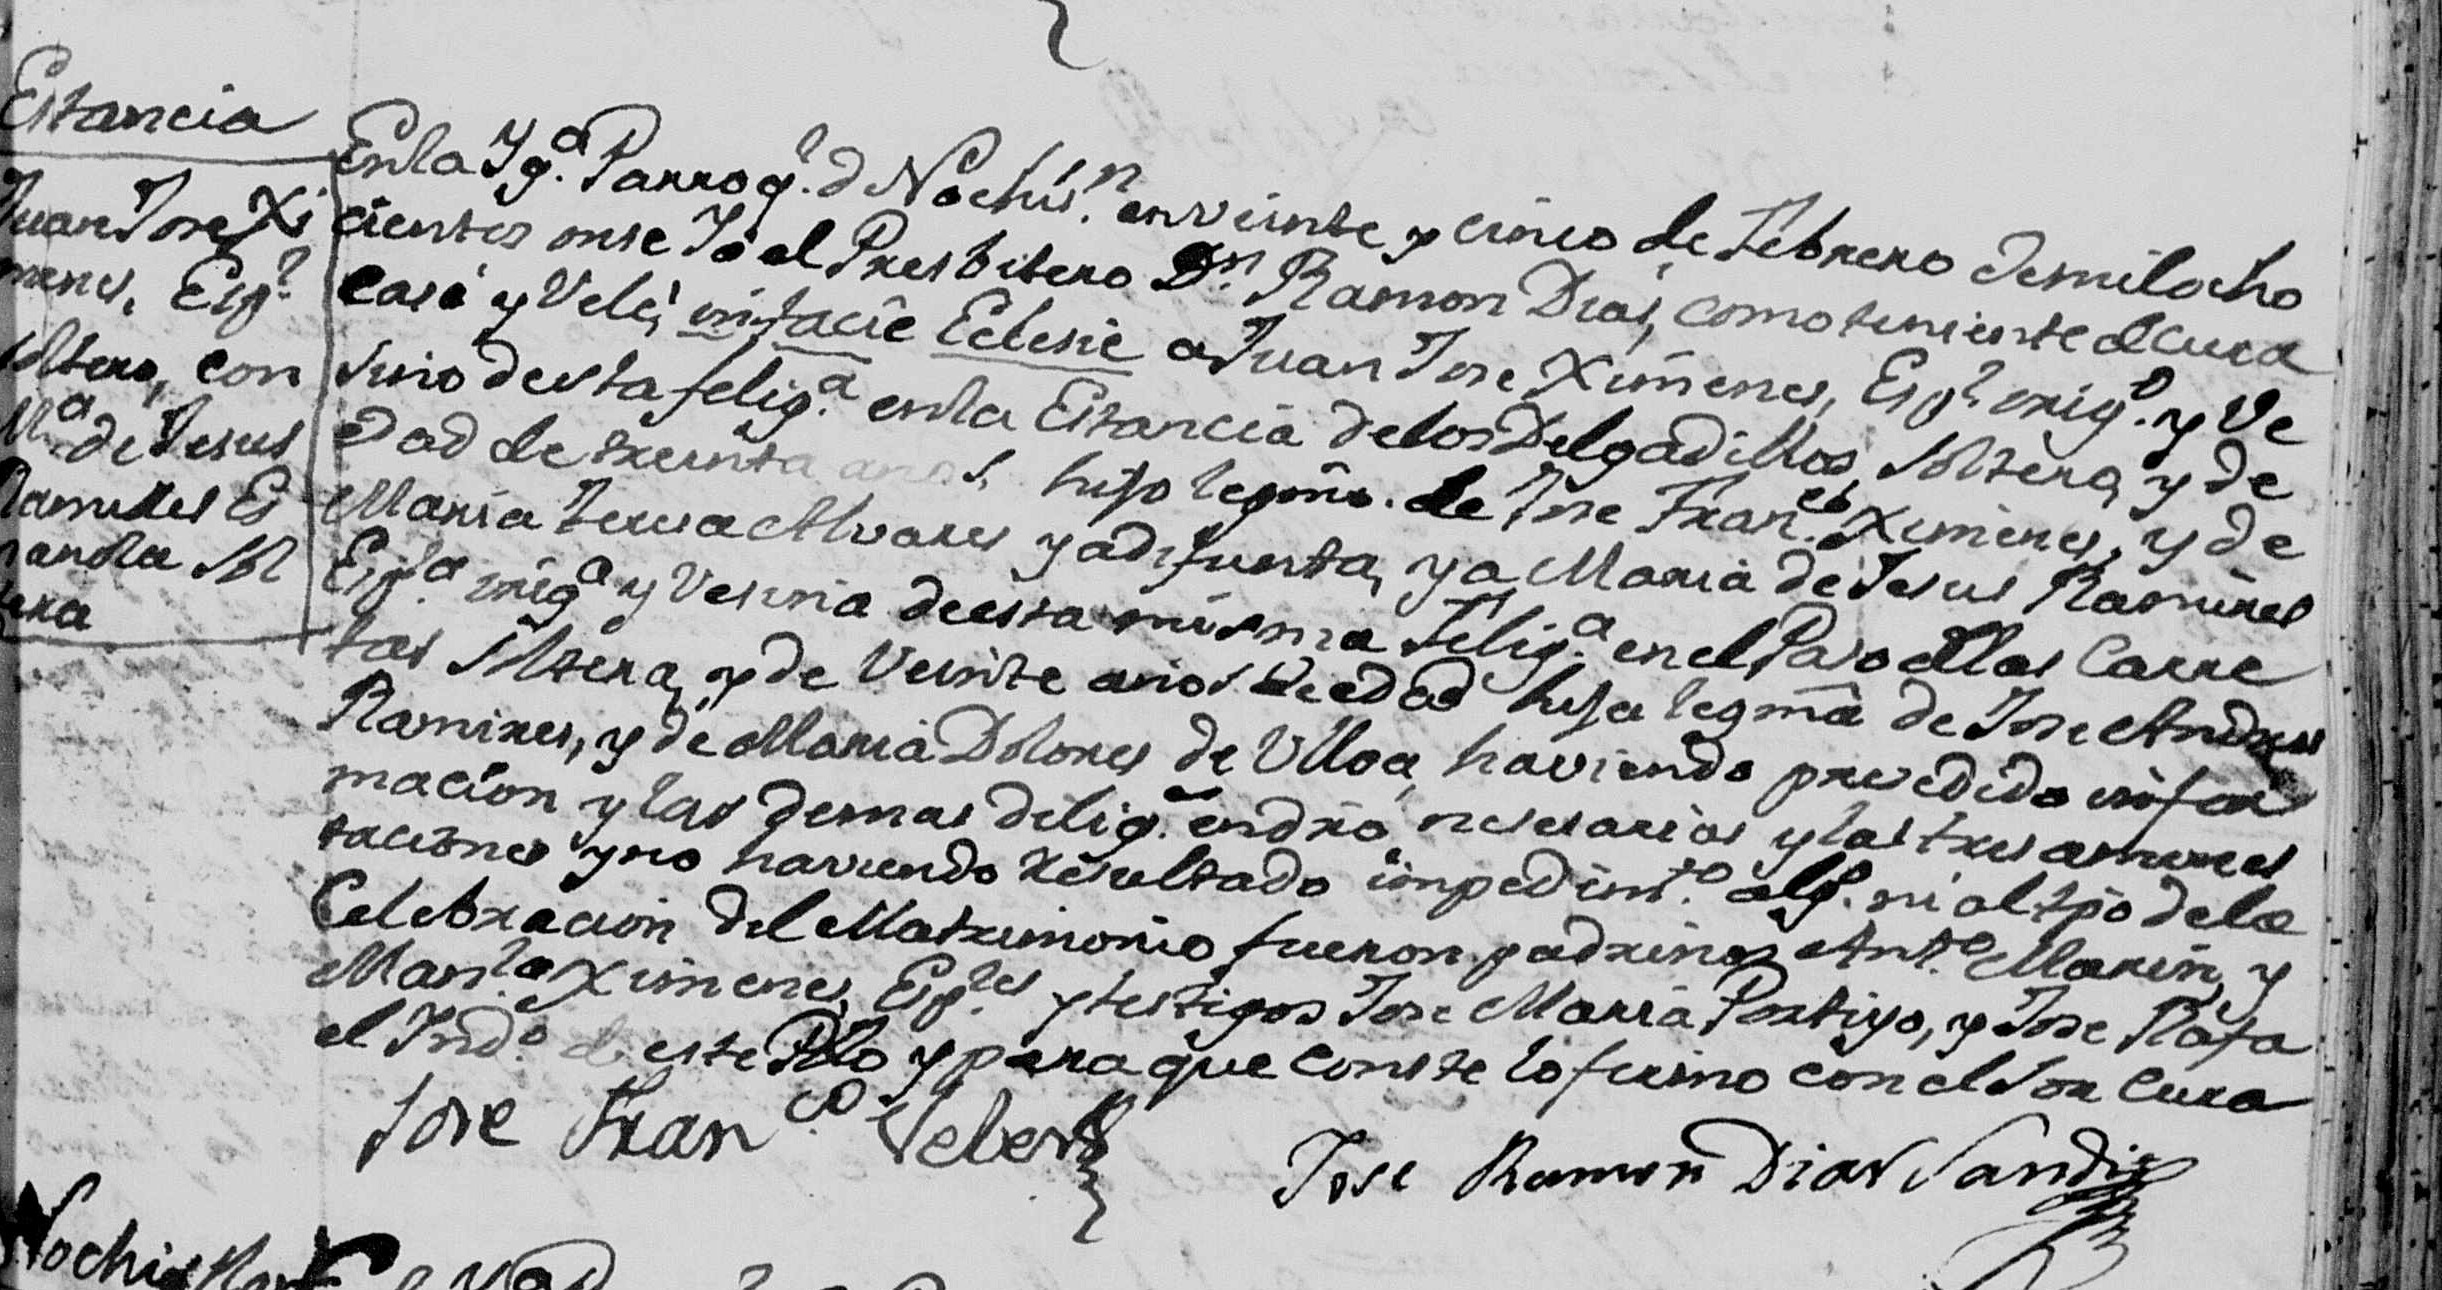 Estancia
Juan Jose Xi
menes, Esp.l
soltero, con
M.a de Jesus
Ramires Es
panola sol
tera
En la Yg.a Parroq.l d Nochis.n en veinte y cinco de Febrero de mil ocho
cientos onse Yo el Presbitero D.n Ramon Dias, como teniente de cura
Casé y Velé, infacie Eclesie a Juan Jose Ximenes, Esp.l orig.o y Ve
sino de esta felig.a en la Estancia de los Delgadillos, soltero, y de
edad de treinta anos, hijo legmo. de Jose Fran.co Ximenes, y de
Maria Teresa Alvares ya difunta, y a Maria de Jesus Ramires
Esp.la orig.a y Vesina de esta misma Felig.a en el Paso de las Carre
tas soltera, y de veinte anos de edad hija legma de Jose Andres
Ramires, y de Maria Dolores de Ulloa, haviendo presedido infor
macion y las demas delig.s nesesarias y las tres amones
taciones y no haviendo resultado impedim.to alg.o ni al tpo de la
Celebracion del Matrimonio fueron padrinos Ant.o Marin, y
Man.la Ximenes, Esp.les y testigos Jose Maria Portiyo, y Jose Rafa
el Ind.o de este Pblo y para que conste lo firmo con el Sor Cura
Jose Fran.co
Jose Ramon Dias Sandi
Nochis